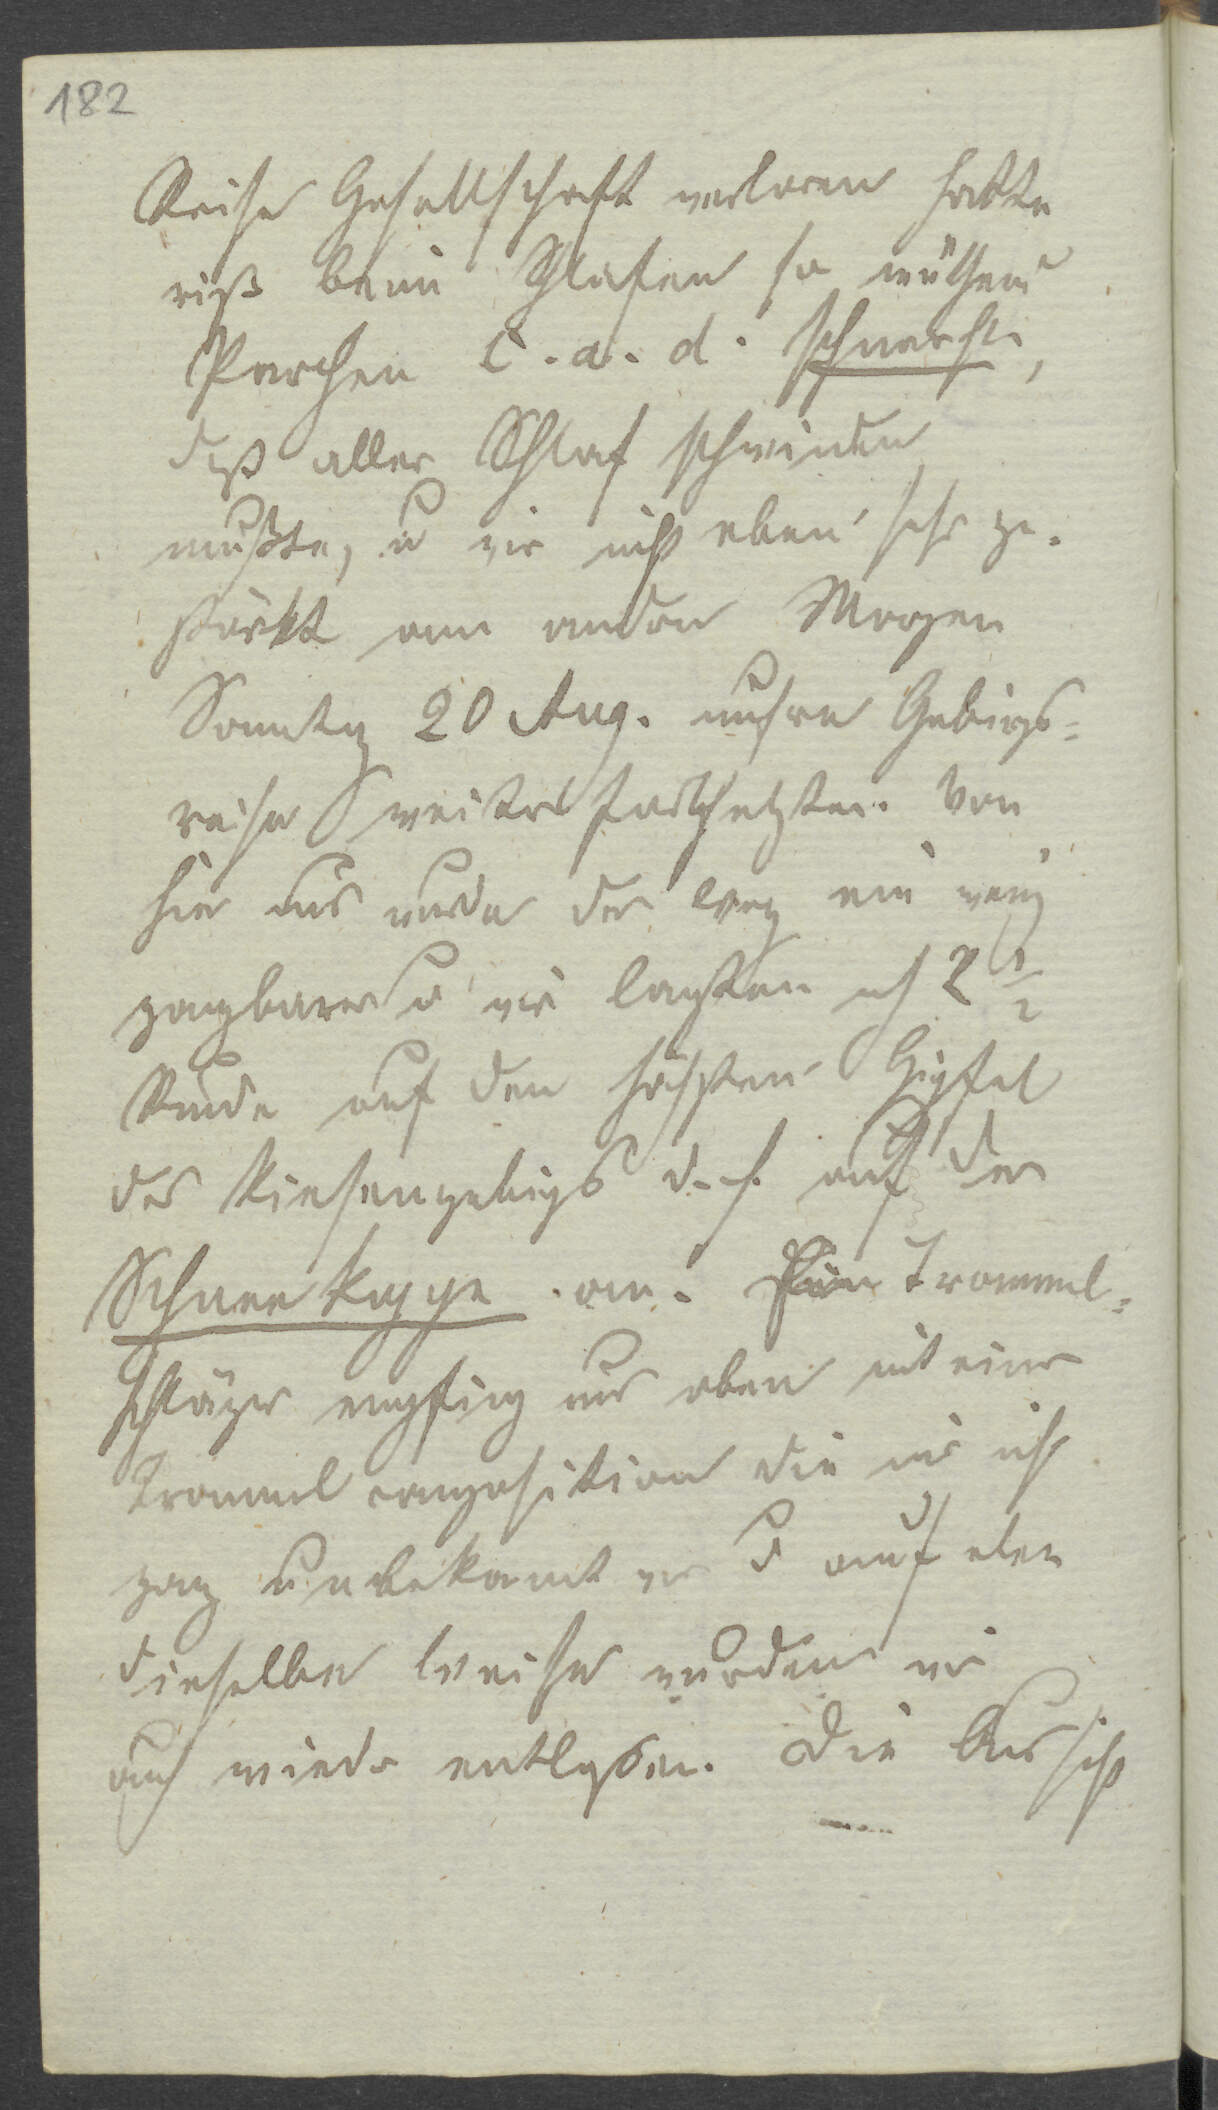 182
Reise Gesellschaft verloren hatte
riß beim Schlafen so wüthend
Parchen c. a. d. schnarchte,
daß aller Schlaf schwinden
mußte, u wir nicht eben sehr ge-
stärkt am andern Morgen
Sonntag 20 Aug. unsre Gebirgs-
reise weiter fortsetzten. Von
hier aus wurde der Weg ein wenig
gangbarer u wir langten nach 2 1/2
Stunde auf den höchsten Gipfel
des Riesengebirgs d. h. auf der
Schneekoppe an. Ein Trommel-
schläger empfing uns oben mit einer
Trommel composition die mir nicht
ganz unbekannt war u auf eben
dieselbe Weise wurden wir
auch wieder entlassen. Die Aussicht